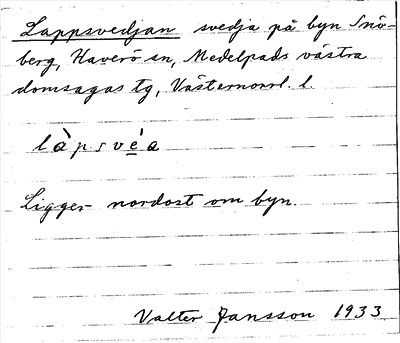 Lappsvedjan svedja på byn Snö-
berg, Haverö sn, Medelpads västra
domsagas tg, Västernorrl. l.
làpsvéa
Ligger nordost om byn.
Valter Jansson 1933